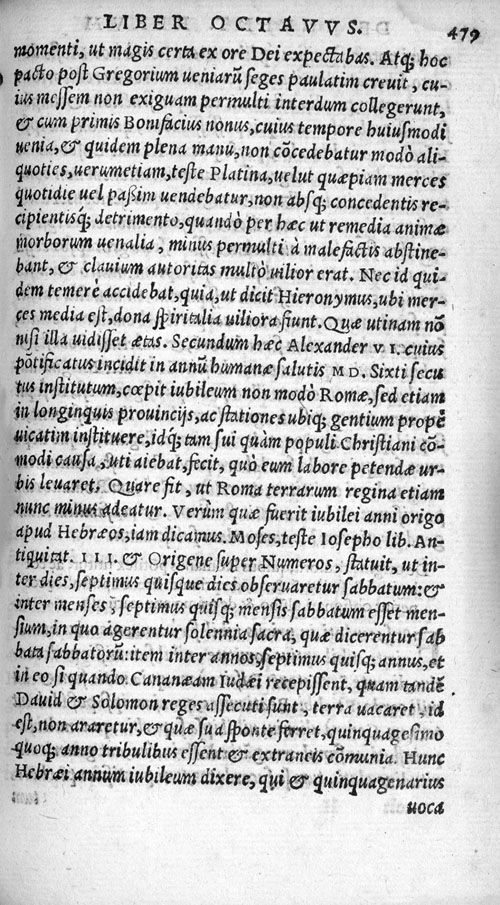 LIBER OCTAVVS. 479
momenti, ut magis certa ex ore Dei expectabas. Atq; hoc
pacto post Gregorium ueniarũ seges paulatim creuit, cu-
ius messem non exiguam permulti interdum collegerunt,
& cum primis Bonifacius nonus, cuius tempore huiusmodi
uenia, & quidem plena manu, non cõcedebatur modò ali-
quoties, uerumetiam, teste Platina, uelut quæpiam merces
quotidie uel paßim uendebatur, non absq; concedentis re-
cipientisq; detrimento, quandò per hæc ut remedia animæ
morborum uenalia, minus permulti à malefactis abstine-
bant, & clauium autoritas multò uilior erat. Nec id qui-
dem temerè accidebat, quia, ut dicit Hieronymus, ubi mer-
ces media est, dona spiritalia uiliora fiunt. Quæ utinam nõ
nisi illa uidisset ætas. Secundum hæc Alexander VI. cuius
põtificatus incidit in annũ humanæ salutis MD. Sixti secu
tus institutum, cœpit iubileum non modò Romæ, sed etiam
in longinquis prouincijs, ac stationes ubiq; gentium propè
uicatim instituere, idq; tam sui quàm populi Christiani cõ-
modi causa, uti aiebat, fecit, quò eum labore petendæ ur-
bis leuaret. Quare fit, ut Roma terrarum regina etiam
nunc minus adeatur. Verùm quæ fuerit iubilei anni origo
apud Hebræos, iam dicamus. Moses, teste Iosepho lib. An-
tiquitat. III. & Origene super Numeros, statuit, ut in-
ter dies, septimus quisque dies obseruaretur sabbatum: &
inter menses, septimus quisq; mensis sabbatum esset men-
sium, in quo agerentur solennia sacra, quæ dicerentur sab
bata sabbatorũ: item inter annos, septimus quisq; annus, et
in eo si quando Cananæam Iudæi recepissent, quam tandẽ
Dauid & Solomon reges assecuti sunt, terra uacaret, id
est, non araretur, & quæ sua sponte ferret, quinquagesimo
quoq; anno tribulibus essent & extraneis cõmunia. Hunc
Hebræi annum iubileum dixere, qui & quinquagenarius
uoca